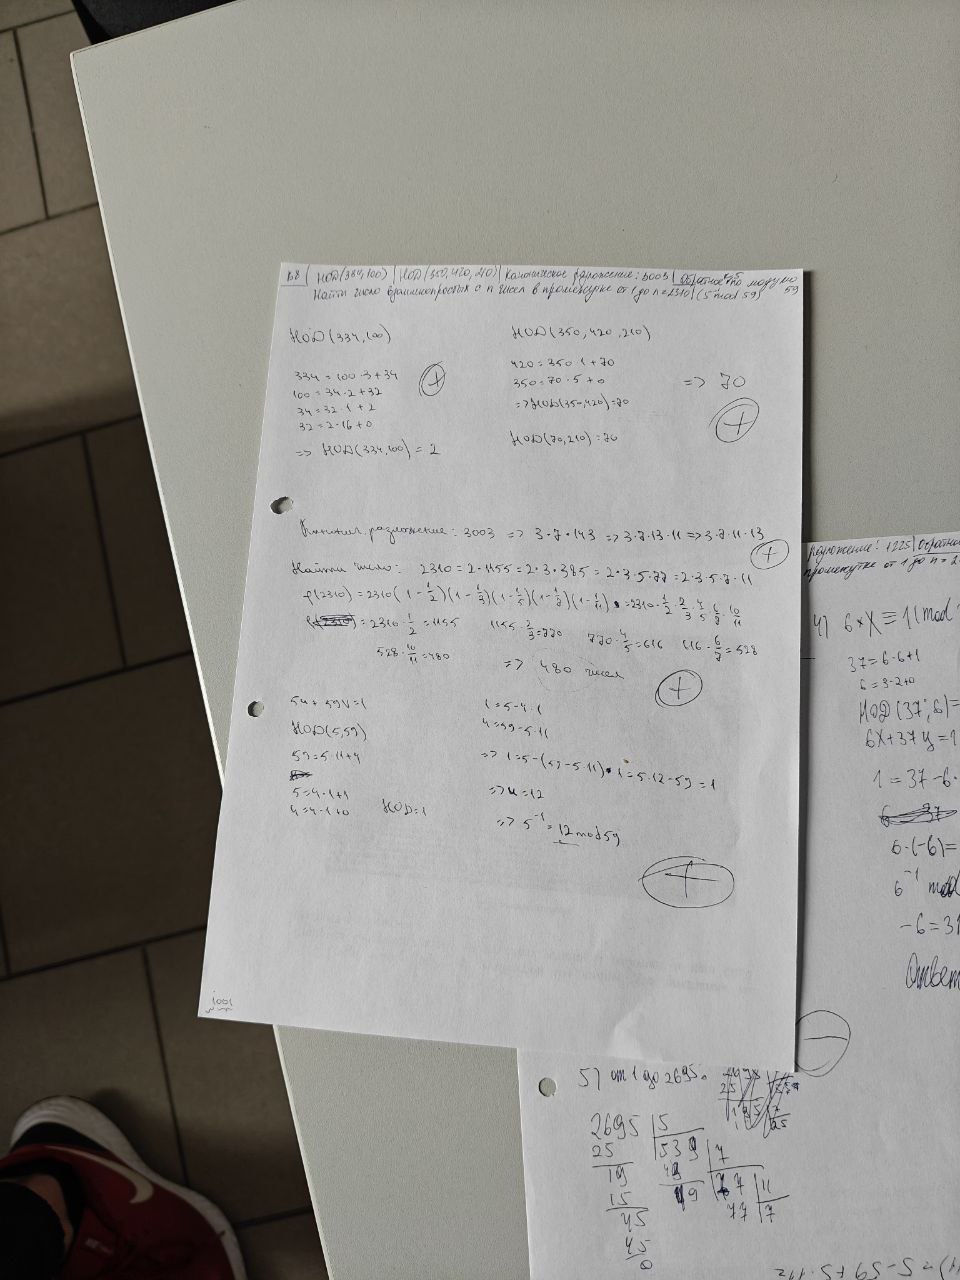 НОД(334,100) | НОД(350,420,210) | Каноническое разложение: 3003 | Обратное по модулю
Найти число взаимнопростых с n чисел в промежутке от 1 до n=2310 | (5 mod 59) 59
НОД(334,100)
334=100·3+34
100=34·2+32
34=32·1+2
32=2·16+0
=> НОД(334,100)=2
НОД(350,420,210)
420=350·1+70
350=70·5+0
=>НОД(350,420)=70
НОД(70,210)=70
=> 70
разложение: 3003 => 3·7·143 =>3·7·13·11 =>3·7·11·13
Найти число: 2310=2·1155=2·3·385=2·3·5·77=2·3·5·7·11
φ(2310)=2310(1-1/2)(1-1/3)(1-1/5)(1-1/7)(1-1/11)=2310·1/2·2/3·4/5·6/7·10/11
=2310·1/2=1155 1155·2/3=770 770·4/5=616 616·6/7=528
528·10/11=480 => 480 чисел
5u+59v=1
НОД(5,59)
59=5·11+4
5=4·1+1
4=4·1+0 НОД=1
1=5-4·1
4=59-5·11
=> 1=5-(59-5·11)·1=5·12-59=1
=>u=12
=> 5⁻¹=12 mod 59
разложение: 1225 | Обратно
промежутке от 1 до n=2
4) 6*X≡1(mod
37=6·6+1
НОД(37,6)=
6X+37y=1
1=37-6·
6·(-6)=
6⁻¹ mod
-6=31
Ответ
5) от 1 до 2695.
2695 | 5
25 539 | 7
19 49 77 | 11
15 49 77 7
45
45
0
)=5-59+5·11